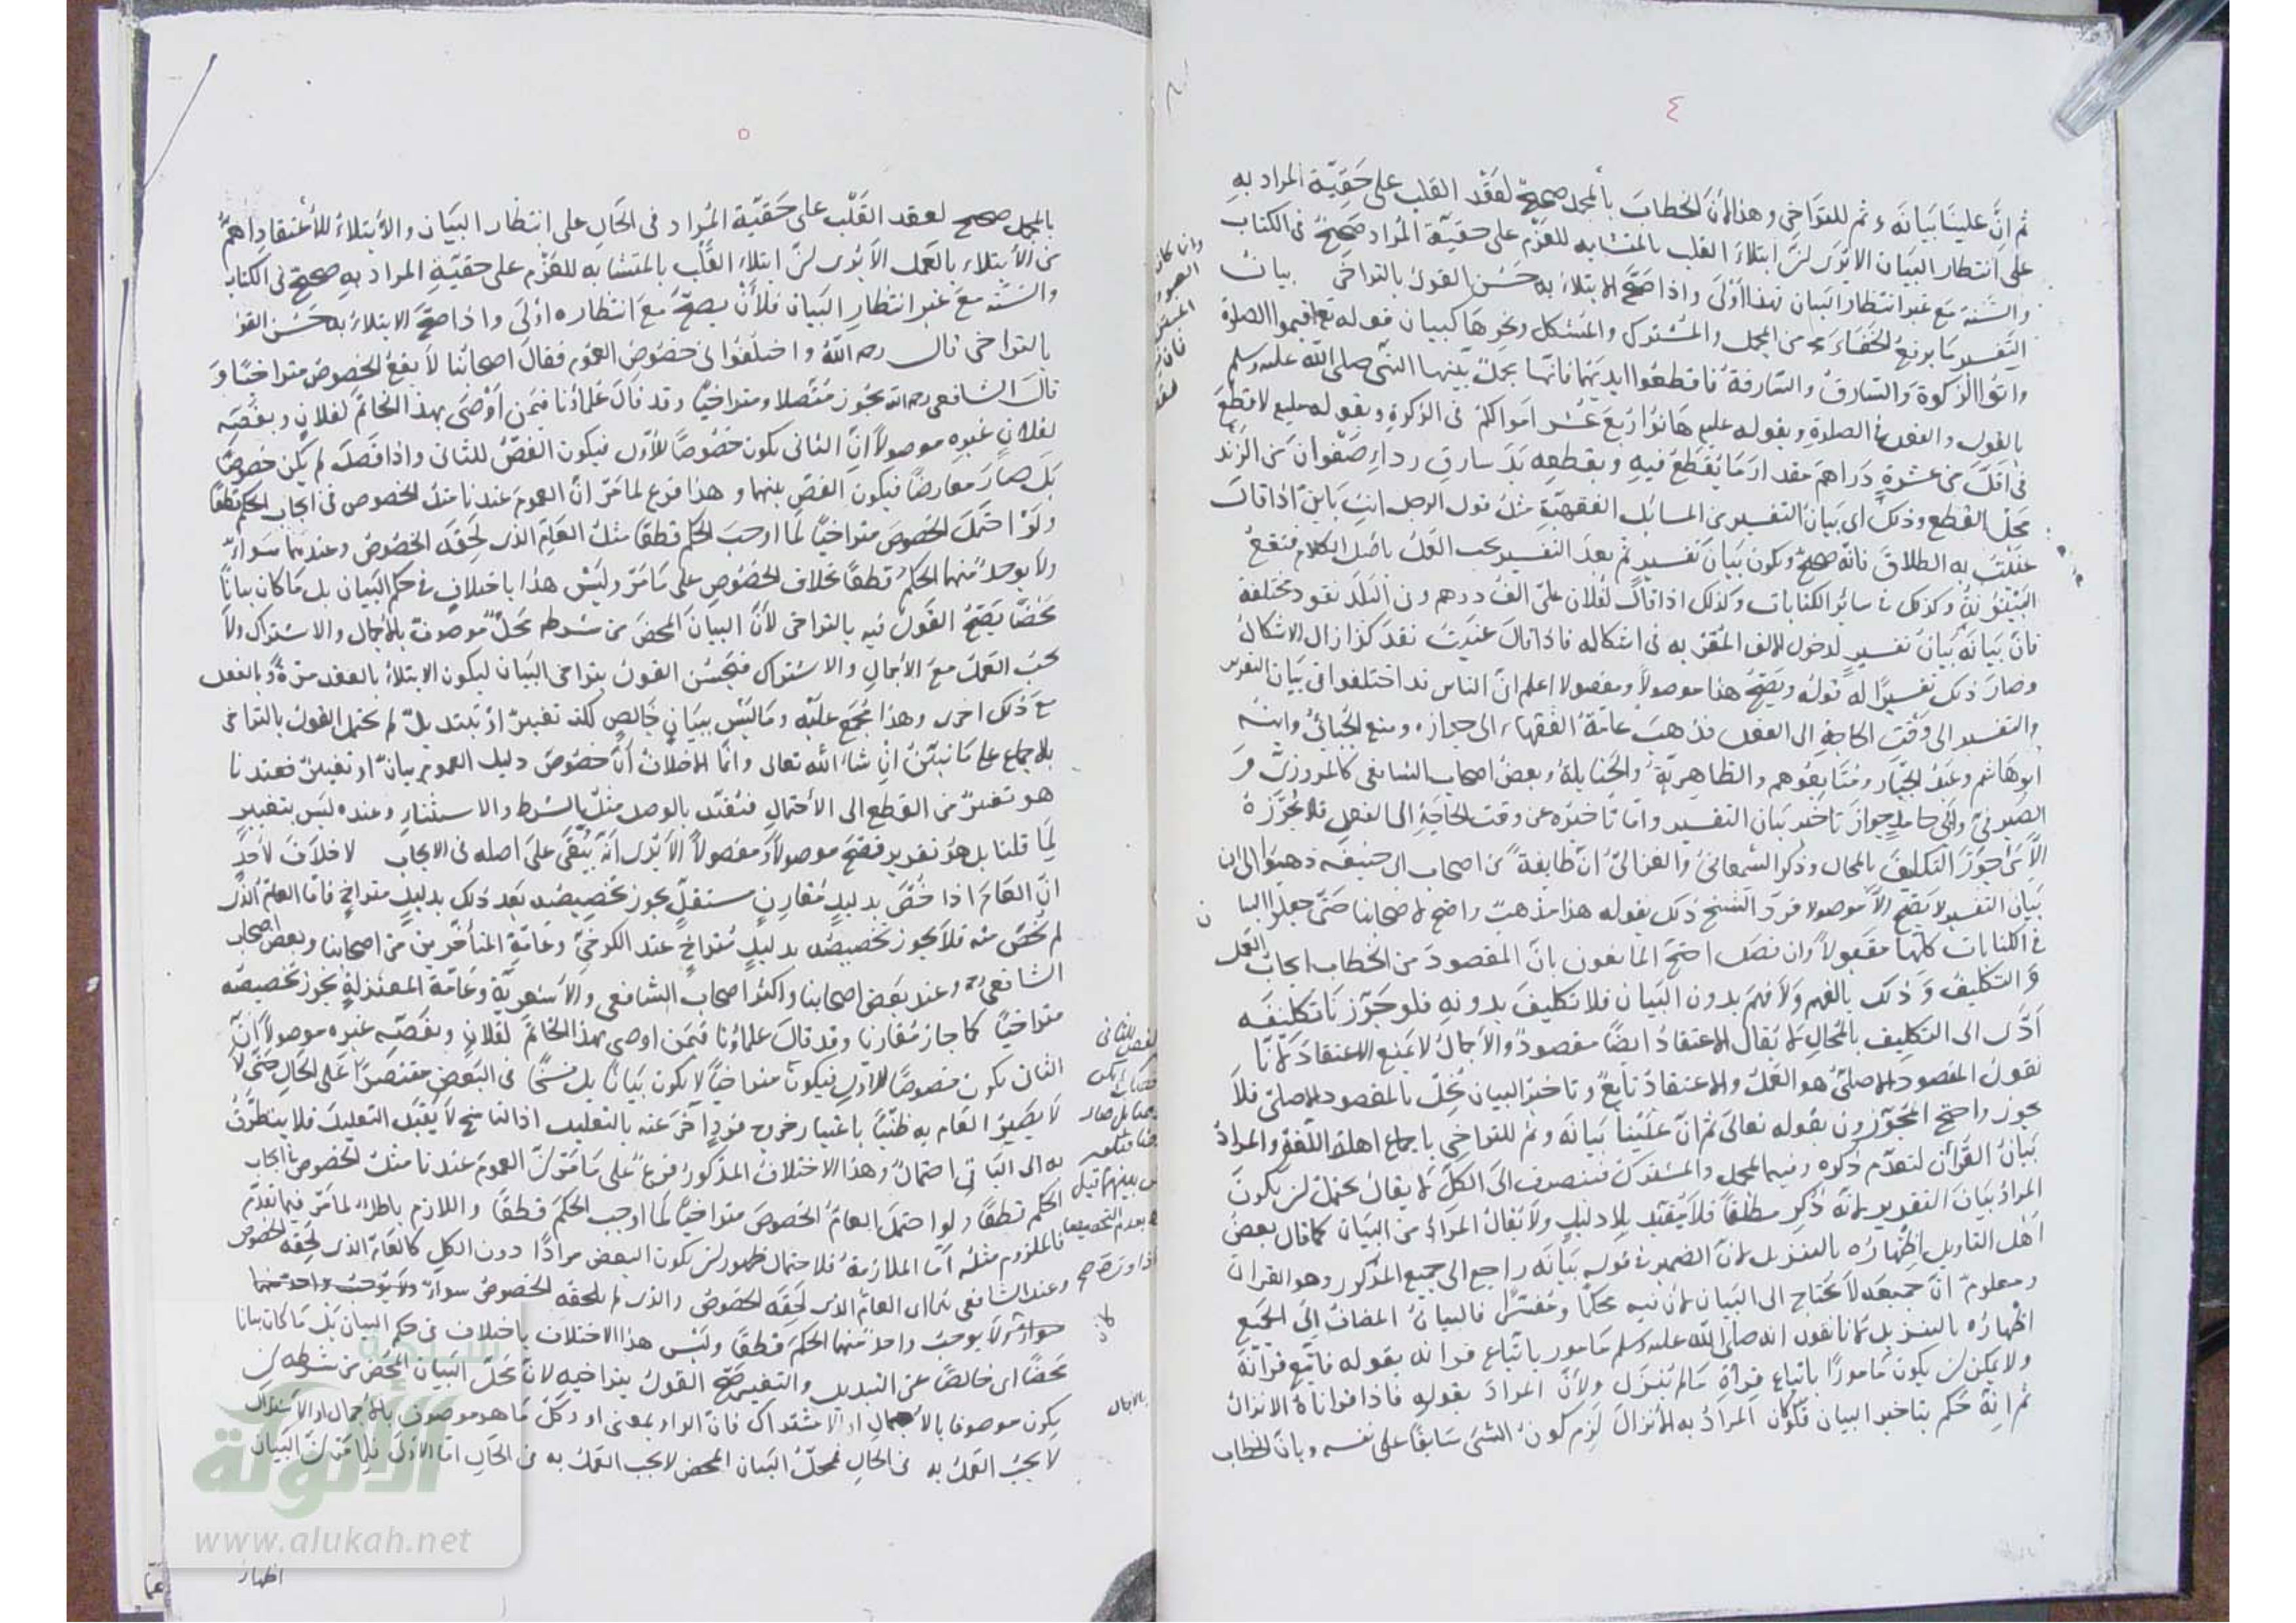 ٤
ثم ان علينا بيانه وثم للتراخي وهذا لان الخطاب بالمجمل صحيح لعقد القلب على حقية المراد به
على انتظار البيان الا يرى لن ابتلاء القلب بالمتشابه للعزم على حقية المراد صحيح فى الكتاب
والسنة مع غير انتظار البيان فهذا اولى واذا صح الابتلاء به حسن القول بالتراخي بيان
التفسير ما يرفع الخفاء من المجمل والمشترك والمشكل ونحوها كبيان قوله تع اقيموا الصلوة
واتوا الزكوة والسارق والسارقة فاقطعوا ايديهما فانها مجمل بينها النبى صلى الله عليه وسلم
بالقول والفعل فى الصلوة وبقوله عليم هاتوا اربع عشر اموالكم فى الزكوة وبقوله عليم لا قطع
فى اقل من عشرة دراهم مقدار ما يقطع فيه وبقطعه يد سارق رداء صفوان من الزند
محل القطع وذلك اى بيان التفسير من المسائل الفقهية مثل قول الرجل انت باين اذا قال
عنيت به الطلاق فانه صحيح ويكون بيان تفسير ثم بعد التفسير يجب العمل باصل الكلام فتقع
البينونة وكذلك فى سائر الكنايات وكذلك اذا قال لفلان على الف درهم وفى البلد نقود مختلفة
فان بيانه بيان تفسير لدخول الالف المقر به فى اشكاله فاذا قال عنيت نقد كذا زال الاشكال
وصار ذلك تفسيرا له قوله ويصح هذا موصولا ومفصولا اعلم ان الناس قد اختلفوا فى بيان التقرير
والتفسير الى وقت الحاجة الى الفعل فذهب عامة الفقهاء الى جوازه ومنع الجبائى وابنه
ابو هاشم وعبد الجبار ومتابعوهم والظاهرية والحنابلة وبعض اصحاب الشافعى كالمروزى و
الصيرفى وابى حامد جواز تاخير بيان التفسير واما تاخيره عن وقت الحاجة الى الفعل فلا يجوزه
الا من جوز التكليف بالمحال وذكر السمعانى والغزالى ان طايفة من اصحاب ابى حنيفة ذهبوا الى ان
بيان التفسير لا يصح الا موصولا فرد الشيخ ذلك بقوله هذا مذهب واضح لاصحابنا حتى جعلوا البيا ن
فى الكنايات كلها مقبولا وان فصل احتج المانعون بان المقصود من الخطاب ايجاب العمل
والتكليف وذلك بالفهم ولا فهم بدون البيان فلا تكليف بدونه فلو جوزنا تكليفه
ادى الى التكليف بالمحال لا يقال الاعتقاد ايضا مقصود والاجمال لا يمنع الاعتقاد لانا
نقول المقصود الاصلى هو العمل والاعتقاد تابع وتاخير البيان يخل بالمقصود الاصلى فلا
يجوز واحتج المجوزون بقوله تعالى ثم ان علينا بيانه وثم للتراخي باجماع اهل اللغة والمراد
بيان القرآن لتقدم ذكره وفيها المجمل والمشترك فينصرف الى الكل لا يقال يحتمل لن يكون
المراد بيان التقرير لانه ذكر مطلقا فلا يقيد بلا دليل ولا يقال المراد من البيان كما قال بعض
اهل التاويل اظهاره بالتنزيل لان الضمير فى قوله بيانه راجع الى جميع المذكور وهو القرآن
ومعلوم ان جميعه لا يحتاج الى البيان لان فيه محكما ومفسرا فالبيان المضاف الى الجميع
اظهاره بالتنزيل لانا نقول انه صلى الله عليه وسلم مامور باتباع قرانه بقوله فاتبع قرآنه
ولا يمكن لن يكون مامورا باتباع قراة ما لم ينزل ولان المراد بقوله فاذا قراناه الانزال
ثم انه حكم بتاخير البيان فلو كان المراد به الانزال لزم كون الشئ سابقا على نفسه وبان الخطاب
٥
بالمجمل صحيح لعقد القلب على حقية المراد فى الحال على انتظار البيان والابتلاء للاعتقاد اهم
من الابتلاء بالعمل الا يرى لن ابتلاء القلب بالمتشابه للعزم على حقية المراد به صحيح فى الكتاب
والسنة مع غير انتظار البيان فلان يصح مع انتظاره اولى واذا صح الابتلاء به حسن القول
بالتراخى قال رحمه الله واختلفوا فى خصوص العموم فقال اصحابنا لا يقع الخصوص متراخيا و
قال الشافعى رحمه الله يجوز متصلا ومتراخيا وقد قال علماؤنا فيمن اوصى بهذا الخاتم لفلان وبفصه
لفلان غيره موصولا ان الثانى يكون خصوصا للاول فيكون الفص للثانى واذا فصل لم يكن خصوصا
بل صار معارضا فيكون الفص بينهما وهذا فرع لما مر ان العموم عندنا مثل الخصوص فى ايجاب الحكم قطعا
ولو احتمل الخصوص متراخيا لما اوجب الحكم قطعا مثل العام الذى لحقه الخصوص وعندهما سواء
ولا يوجد منهما الحكم قطعا بخلاف الخصوص على ما مر وليس هذا باختلاف فى حكم البيان بل ما كان بيانا
محضا يصح القول فيه بالتراخى لان البيان المحض من شرطه محل موصوف بالاجمال والاشتراك ولا
يجب العمل مع الاجمال والاشتراك فيحسن القول بتراخى البيان ليكون الابتلاء بالعقد مرة وبالفعل
مع ذلك اخرى وهذا مجمع عليه وما ليس ببيان خالص لكنه تغيير او تبديل لم يحتمل القول بالتراخى
بالاجماع على ما نبين ان شاء الله تعالى وانما الاختلاف ان خصوص دليل العموم بيان او تغيير فعندنا
هو تغيير من القطع الى الاحتمال فيقيد بالوصل مثل الشرط والاستثناء وعنده ليس بتغيير
لما قلنا بل هو تقرير فصح موصولا ومفصولا الا يرى انه يبقى على اصله فى الايجاب لا خلاف لاحد
ان العام اذا خص بدليل مقارن مستقل يجوز تخصيصه بعد ذلك بدليل متراخ فاما العام الذى
لم يخص منه فلا يجوز تخصيصه بدليل متراخ عند الكرخى وعامة المتأخرين من اصحابنا وبعض اصحاب
الشافعى وعند بعض اصحابنا واكثر اصحاب الشافعى والاشعرية وعامة المعتزلة يجوز تخصيصه
متراخيا كما جاز مقارنا وقد قال علماؤنا فيمن اوصى بهذا الخاتم لفلان وبفصه غيره موصولا ان
الثانى يكون خصوصا للاول فيكون متراخيا لا يكون بيانا بل نسخا فى البعض مقتصرا على الحال حتى لا
لا يصير العام به ظنيا باعتبار خروج فرد اخر عنه بالتعليل اذ الناسخ لا يقبل التعليل فلا يتطرق
به الى الباقى احتمال وهذا الاختلاف المذكور فرع على ما مر لن العموم عندنا مثل الخصوص فى ايجاب
الحكم قطعا ولو احتمل العام الخصوص متراخيا لما اوجب الحكم قطعا واللازم باطل لما مر فيما تقدم
فالملزوم مثله اما الملازمة فلاحتمال ظهور لن يكون البعض مرادا دون الكل كالعام الذى لحقه الخصوص
وعند الشافعى العام الذى لحقه الخصوص والذى لم يلحقه الخصوص سواء ولا يوجب واحد منهما
سواء لا يوجب واحد منهما الحكم قطعا وليس هذا الاختلاف باختلاف فى حكم البيان بل ما كان بيانا
محضا اى خالصا عن التبديل والتغيير صح القول بتراخيه لان محل البيان المحض من شرطه لن
يكون موصوفا بالاجمال او الاشتراك فان الواو بمعنى او وكل ما هو موصوف بالاجمال او الاشتراك
لا يجب العمل به فى الحال فمحل البيان المحض لا يجب العمل به فى الحال اما الاول فلما مر لن البيان
اظهار
الألوكة
www.alukah.net